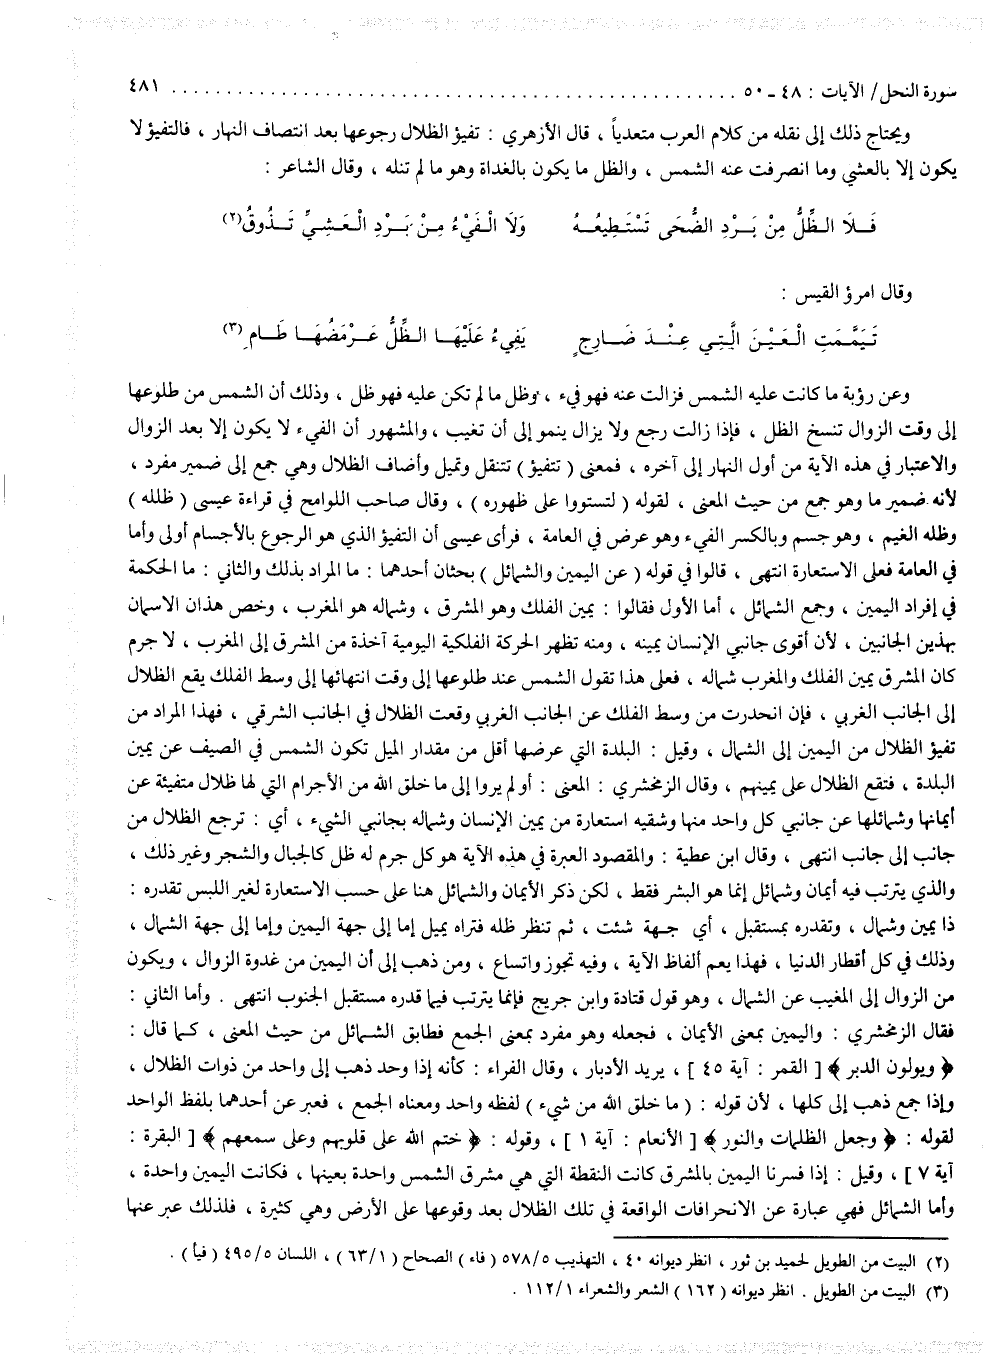 سورة النحل/ الآيات : ٤٨ ـ ٥٠ . . . . . . . . . . . . . . . . . . . . . . . . . . . . . . . . . . . . . . . . . . ٤٨١
ويحتاج ذلك إلى نقله من كلام العرب متعدياً ، قال الأزهري : تفيؤ الظلال رجوعها بعد انتصاف النهار ، فالتفيؤ لا
يكون إلا بالعشي وما انصرفت عنه الشمس ، والظل ما يكون بالغداة وهو ما لم تنله ، وقال الشاعر :
فَلَا الظِّلُّ مِنْ بَرْدِ الضُّحَى تَسْتَطِيعُهُ وَلَا الْفَيْءُ مِنْ بَرْدِ الْعَشِيِّ تَذُوقُ(٢)
وقال امرؤ القيس :
تَيَمَّمَتِ الْعَيْنَ الَّتِي عِنْدَ ضَارِجٍ يَفِيءُ عَلَيْهَا الظِّلُّ عَرْمَضُهَا طَامِ(٣)
وعن رؤبة ما كانت عليه الشمس فزالت عنه فهو فيء ، وظل ما لم تكن عليه فهو ظل ، وذلك أن الشمس من طلوعها
إلى وقت الزوال تنسخ الظل ، فإذا زالت رجع ولا يزال ينمو إلى أن تغيب ، والمشهور أن الفيء لا يكون إلا بعد الزوال
والاعتبار في هذه الآية من أول النهار إلى آخره ، فمعنى ( تتفيؤ ) تتنقل وتميل وأضاف الظلال وهي جمع إلى ضمير مفرد ،
لأنه ضمير ما وهو جمع من حيث المعنى ، لقوله ( لتستووا على ظهوره ) ، وقال صاحب اللوامح في قراءة عيسى ( ظلله )
وظله الغيم ، وهو جسم وبالكسر الفيء وهو عرض في العامة ، فرأى عيسى أن التفيؤ الذي هو الرجوع بالأجسام أولى وأما
في العامة فعلى الاستعارة انتهى ، قالوا في قوله ( عن اليمين والشمائل ) بحثان أحدهما : ما المراد بذلك والثاني : ما الحكمة
في إفراد اليمين ، وجمع الشمائل ، أما الأول فقالوا : يمين الفلك وهو المشرق ، وشماله هو المغرب ، وخص هذان الاسمان
بهذين الجانبين ، لأن أقوى جانبي الإنسان يمينه ، ومنه تظهر الحركة الفلكية اليومية آخذة من المشرق إلى المغرب ، لا جرم
كان المشرق يمين الفلك والمغرب شماله ، فعلى هذا تقول الشمس عند طلوعها إلى وقت انتهائها إلى وسط الفلك يقع الظلال
إلى الجانب الغربي ، فإن انحدرت من وسط الفلك عن الجانب الغربي وقعت الظلال في الجانب الشرقي ، فهذا المراد من
تفيؤ الظلال من اليمين إلى الشمال ، وقيل : البلدة التي عرضها أقل من مقدار الميل تكون الشمس في الصيف عن يمين
البلدة ، فتقع الظلال على يمينهم ، وقال الزمخشري : المعنى : أو لم يروا إلى ما خلق الله من الأجرام التي لها ظلال متفيئة عن
أيمانها وشمائلها عن جانبي كل واحد منها وشقيه استعارة من يمين الإنسان وشماله بجانبي الشيء ، أي : ترجع الظلال من
جانب إلى جانب انتهى ، وقال ابن عطية : والمقصود العبرة في هذه الآية هو كل جرم له ظل كالجبال والشجر وغير ذلك ،
والذي يترتب فيه أيمان وشمائل إنما هو البشر فقط ، لكن ذكر الأيمان والشمائل هنا على حسب الاستعارة لغير اللبس تقدره :
ذا يمين وشمال ، وتقدره بمستقبل ، أي جهة شئت ، ثم تنظر ظله فتراه يميل إما إلى جهة اليمين وإما إلى جهة الشمال ،
وذلك في كل أقطار الدنيا ، فهذا يعم ألفاظ الآية ، وفيه تجوز واتساع ، ومن ذهب إلى أن اليمين من غدوة الزوال ، ويكون
من الزوال إلى المغيب عن الشمال ، وهو قول قتادة وابن جريج فإنما يترتب فيما قدره مستقبل الجنوب انتهى . وأما الثاني :
فقال الزمخشري : واليمين بمعنى الأيمان ، فجعله وهو مفرد بمعنى الجمع فطابق الشمائل من حيث المعنى ، كما قال :
﴿ ويولون الدبر ﴾ [ القمر : آية ٤٥ ] ، يريد الأدبار ، وقال الفراء : كأنه إذا وحد ذهب إلى واحد من ذوات الظلال ،
وإذا جمع ذهب إلى كلها ، لأن قوله : ( ما خلق الله من شيء ) لفظه واحد ومعناه الجمع ، فعبر عن أحدهما بلفظ الواحد
لقوله : ﴿ وجعل الظلمات والنور ﴾ [ الأنعام : آية ١ ] ، وقوله : ﴿ ختم الله على قلوبهم وعلى سمعهم ﴾ [ البقرة :
آية ٧ ] ، وقيل : إذا فسرنا اليمين بالمشرق كانت النقطة التي هي مشرق الشمس واحدة بعينها ، فكانت اليمين واحدة ،
وأما الشمائل فهي عبارة عن الانحرافات الواقعة في تلك الظلال بعد وقوعها على الأرض وهي كثيرة ، فلذلك عبر عنها
(٢) البيت من الطويل لحميد بن ثور ، انظر ديوانه ٤٠ ، التهذيب ٥٧٨/٥ ( فاء ) الصحاح ( ٦٣/١ ) ، اللسان ٤٩٥/٥ ( فيأ ) .
(٣) البيت من الطويل . انظر ديوانه ( ١٦٢ ) الشعر والشعراء ١١٢/١ .